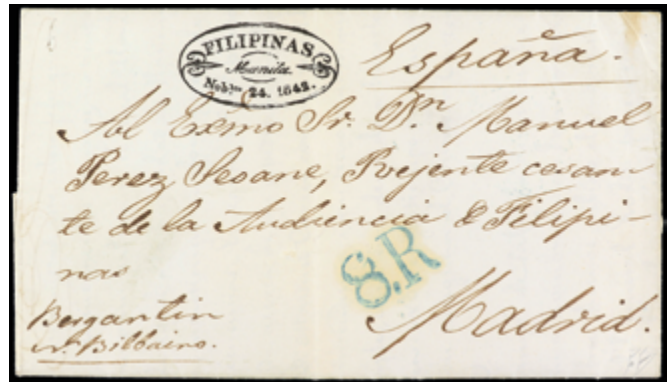 FILIPINAS
Manila
Nobre 24. 1842.
España.
Al Exmo Sr. Dn Manuel
Perez Seoane, Rejente cesan-
te de la Audiencia d Filipi-
nas
8.R
Madrid.
Bergantin
Bilbaino.